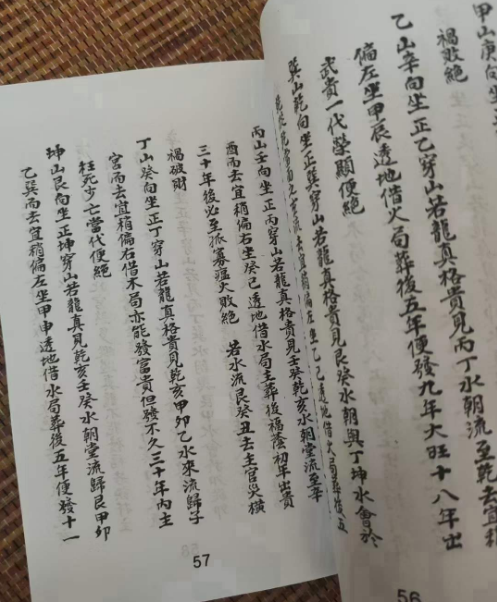 甲山庚向坐
禍敗絕
乙山辛向坐正乙穿山若龍真格貴見丙丁水朝流至乾去宜稍
偏左坐甲辰透地借火局葬後五年便發九年大旺十八年出
武貴一代榮顯便絕
巽山乾向坐正巽穿山若龍真格貴見艮癸水朝與丁坤水會於
去宜稍偏左坐乙巳透地借火局葬後五
56
丙山壬向坐正丙穿山若龍真格貴見壬癸乾亥水朝堂流至辛
酉而去宜稍偏右坐癸巳透地借水局主葬後福蔭初年出貴
三十年後必至孤寡瘟火敗絕 若水流艮癸丑去主官災橫
禍破財
丁山癸向坐正丁穿山若龍真格貴見乾亥甲卯乙水來流歸子
宮而去宜稍偏右借木局亦能發富貴但發不久三十年內主
枉死少亡當代便絕
坤山艮向坐正坤穿山若龍真見乾亥壬癸水朝堂流歸艮甲卯
乙巽而去宜稍偏左坐甲申透地借水局葬後五年便發十一
57